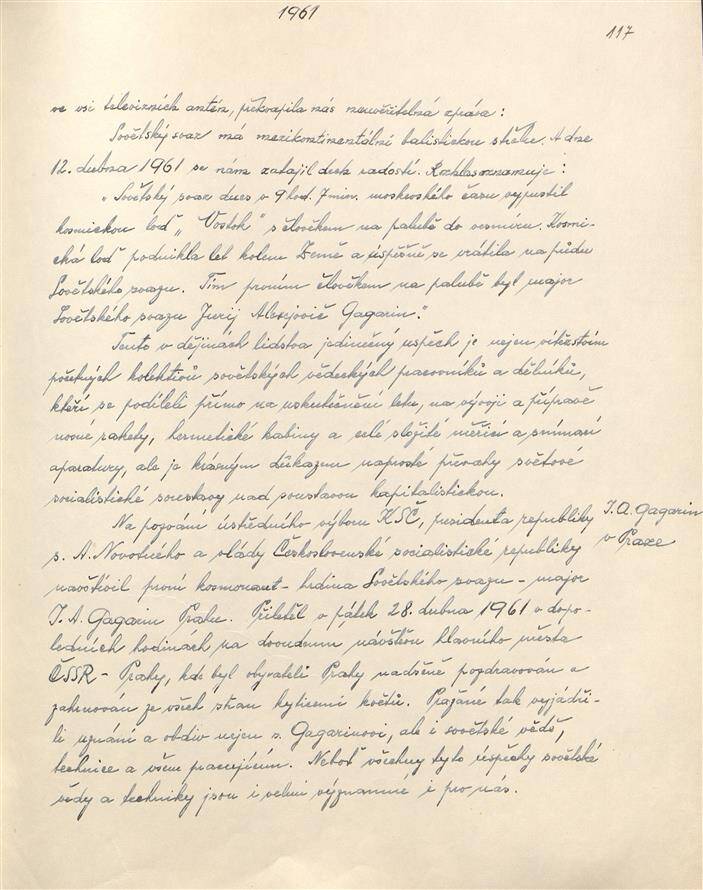 1961
117
ve vsi televizních antén, překvapila nás neuvěřitelná zpráva:
Sovětský svaz má mezikontinentální balistickou střelu. A dne
12. dubna 1961 se nám zatajil dech radostí. Rozhlas oznamuje:
„Sovětský svaz dnes v 9 hod. 7 min. moskevského času vypustil
kosmickou loď „Vostok" s člověkem na palubě do vesmíru. Kosmi-
cká loď podnikla let kolem Země a úspěšně se vrátila na půdu
Sovětského svazu. Tím prvním člověkem na palubě byl major
Sovětského svazu Jurij Alexejovič Gagarin."
Tento v dějinách lidstva jedinečný úspěch je nejen vítězstvím
početných kolektivů sovětských vědeckých pracovníků a dělníků,
kteří se podíleli přímo na uskutečnění letu, na vývoji a přípravě
nosné rakety, hermetické kabiny a celé složité měřící a snímací
aparatury, ale je krásným důkazem naprosté převahy světové
socialistické soustavy nad soustavou kapitalistickou.
Na pozvání ústředního výboru KSČ, presidenta republiky
J. A. Gagarin
v Praze
s. A. Novotného a vlády Československé socialistické republiky
navštívil první kosmonaut - hrdina Sovětského svazu - major
J. A. Gagarin Prahu. Přiletěl v pátek 28. dubna 1961 v dopo-
ledních hodinách na dvoudenní návštěvu hlavního města
ČSSR - Prahy, kde byl obyvateli Prahy nadšeně pozdravován a
zahrnován ze všech stran kyticemi květů. Pražané tak vyjádři-
li uznání a obdiv nejen s. Gagarinovi, ale i sovětské vědě,
technice a všem pracujícím. Neboť všechny tyto úspěchy sovětské
vědy a techniky jsou i velmi významné i pro nás.